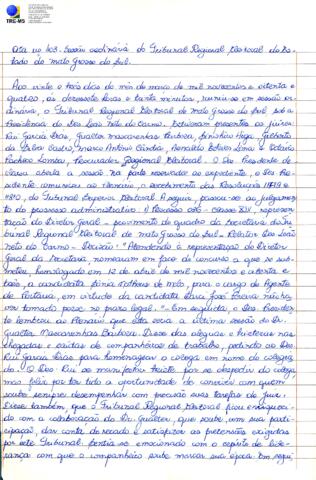 TRE-MS
Ata nº 103. Sessão ordinária do Tribunal Regional Eleitoral do Es-
tado de Mato Grosso do Sul.
Aos vinte e dois dias do mês de março de mil novecentos e oitenta e
quatro, às dezessete horas e trinta minutos, reuniu-se em sessão or-
dinária, o Tribunal Regional Eleitoral de Mato Grosso do Sul sob a
Presidência do Des. Leão Neto do Carmo. Estiveram presentes os juízes
Rui Garcia Dias, Gualter Mascarenhas Barbosa, Higa, Gilberto
da Silva Castro, Marco Antônio Cândia,
Pacheco Lomba, Procurador Regional Eleitoral. O Des. Presidente de-
clarou aberta a sessão. Na parte reservada ao expediente, o Des. Pre-
sidente anunciou ao plenário, o recebimento das Resoluções
do Tribunal Superior Eleitoral. A seguir, passou-se ao julgamento
do processo administrativo. Classe XIV, represen-
tação do Diretor Geral - provimento do quadro da Secretaria do Tri-
bunal Regional Eleitoral de Mato Grosso do Sul - Relator Des. Leão
Neto do Carmo - Decisão: "Atendendo à representação do Diretor
Geral da Secretaria nomearam em face do concurso a que se sub-
meteu, homologado em 12 de abril de mil novecentos e oitenta e
três, a candidata Matheus de Melo, para o cargo de Agente
de Portaria, em virtude da candidata José Pereira não ha-
ver tomado posse no prazo legal." - Em seguida, o Des. Presi-
dente lembrou ao Plenário que esta seria a última sessão do Dr.
Gualter Mascarenhas Barbosa. Disse das alegrias e tristezas nas
chegadas e saídas de companheiros de trabalho, pedindo ao Des.
Rui Garcia Dias para homenagear o colega em nome do colegia-
do. O Des. Rui se manifestou triste por se despedir do colega
mas feliz por ter tido a oportunidade de conviver com quem
soube sempre desempenhar com precisão suas tarefas de juiz.
Disse também, que o Tribunal Regional Eleitoral ficou enriqueci-
do com a colaboração do Dr. Gualter, que soube, em sua parti-
cipação, dar conta do recado e satisfazer as pretensões exigidas
por este Tribunal. Sentia-se emocionado com o espírito de lide-
rança com que o companheiro soube marcar sua época. Em segui-